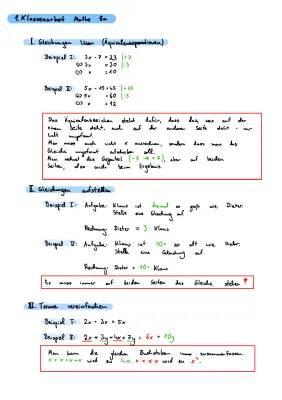 1. Klassenarbeit Mathe 8a
I. Gleichungen lösen (Äquivalenzoperationen)
Beispiel I: 3x - 7 = 23 |+7
(=) 3x = 30 |:3
(=) x = 10
Beispiel II: 5x - 15 = 45 |+15
(=) 5x = 60 |:5
(=) x = 12
Das Äquivalenzzeichen steht dafür, dass das, was auf der
einen Seite steht, auch auf der anderen Seite steht - nur
halt umgeformt.
Man muss auch nicht x ausrechnen, sondern dass man das
Gleiche umgeformt aufschreiben soll.
Man rechnet das Gegenteil (-7 → +7), aber auf beiden
Seiten, also auch beim Ergebnis.
II. Gleichungen aufstellen
Beispiel I: Aufgabe: Klaus ist dreimal so groß wie Dieter.
Stelle eine Gleichung auf.
Rechnung: Dieter = 3 · Klaus
Beispiel II: Aufgabe: Klaus ist 10 · so alt wie Dieter.
Stelle eine Gleichung auf.
Rechnung: Dieter = 10 · Klaus
Es muss immer auf beiden Seiten das Gleiche stehen!
III. Terme vereinfachen
Beispiel I: 2x + 3x = 5x
Beispiel II: 2x + 3y + 4x + 7y = 6x + 10y
Man kann die gleichen Buchstaben immer zusammenfassen.
x + x + x + x wird zu 4x. x · x · x · x wird zu x⁴.